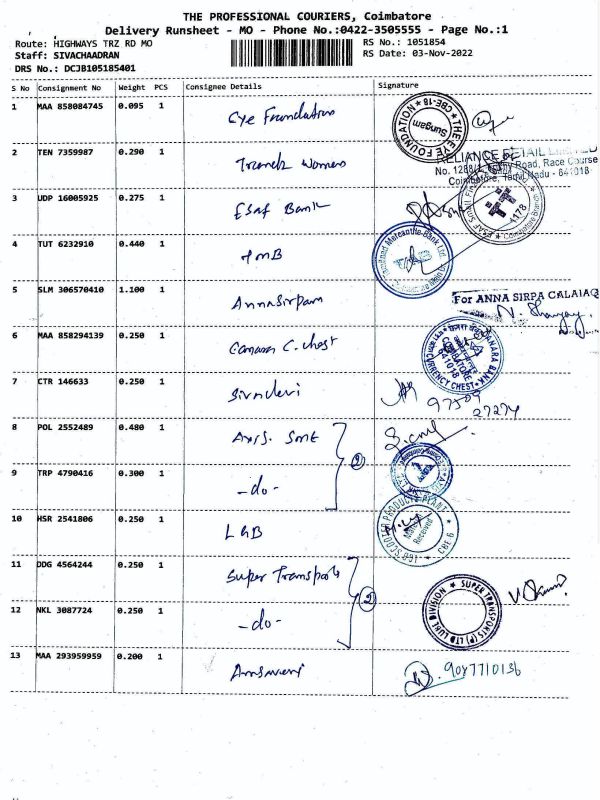 THE PROFESSIONAL COURIERS, Coimbatore
Delivery Runsheet - MO - Phone No.:0422-3505555 - Page No.:1
Route: HIGHWAYS TRZ RD MO
RS No.: 1051854
Staff: SIVACHAADRAN
RS Date: 03-Nov-2022
DRS No.: DCJB105185401
S No Consignment No Weight PCS Consignee Details Signature
1 MAA 858084745 0.095 1 Eye Foundation
THE EYE FOUNDATION ★ CBE-18 ★
Sungam
2 TEN 7359987 0.290 1 Women
RELIANCE RETAIL LIMITED
Road, Race Course
Coimbatore, Tamil Nadu - 641018
3 UDP 16005925 0.275 1 ESAF Bank
1178
4 TUT 6232910 0.440 1 TMB
Mercantile Bank Ltd.
5 SLM 306570410 1.100 1 Annasirpam
For ANNA SIRPA CALAIAG
6 MAA 858294139 0.250 1 Canara C. Chest
CANARA BANK
CURRENCY CHEST
COIMBATORE
641018
7 CTR 146633 0.250 1 Sivadevi
97509
27274
8 POL 2552489 0.480 1 Axis. SME
2
9 TRP 4790416 0.300 1 -do-
10 HSR 2541806 0.250 1 LGB
LGB SCOOTER PRODUCTS PLANT
CBE 6
Received
11 DDG 4564244 0.250 1 Super Transports
2
SUPER TRANSPORTS (P) LTD LUBE DIVISION
12 NKL 3087724 0.250 1 -do-
13 MAA 293959959 0.200 1
9087710136